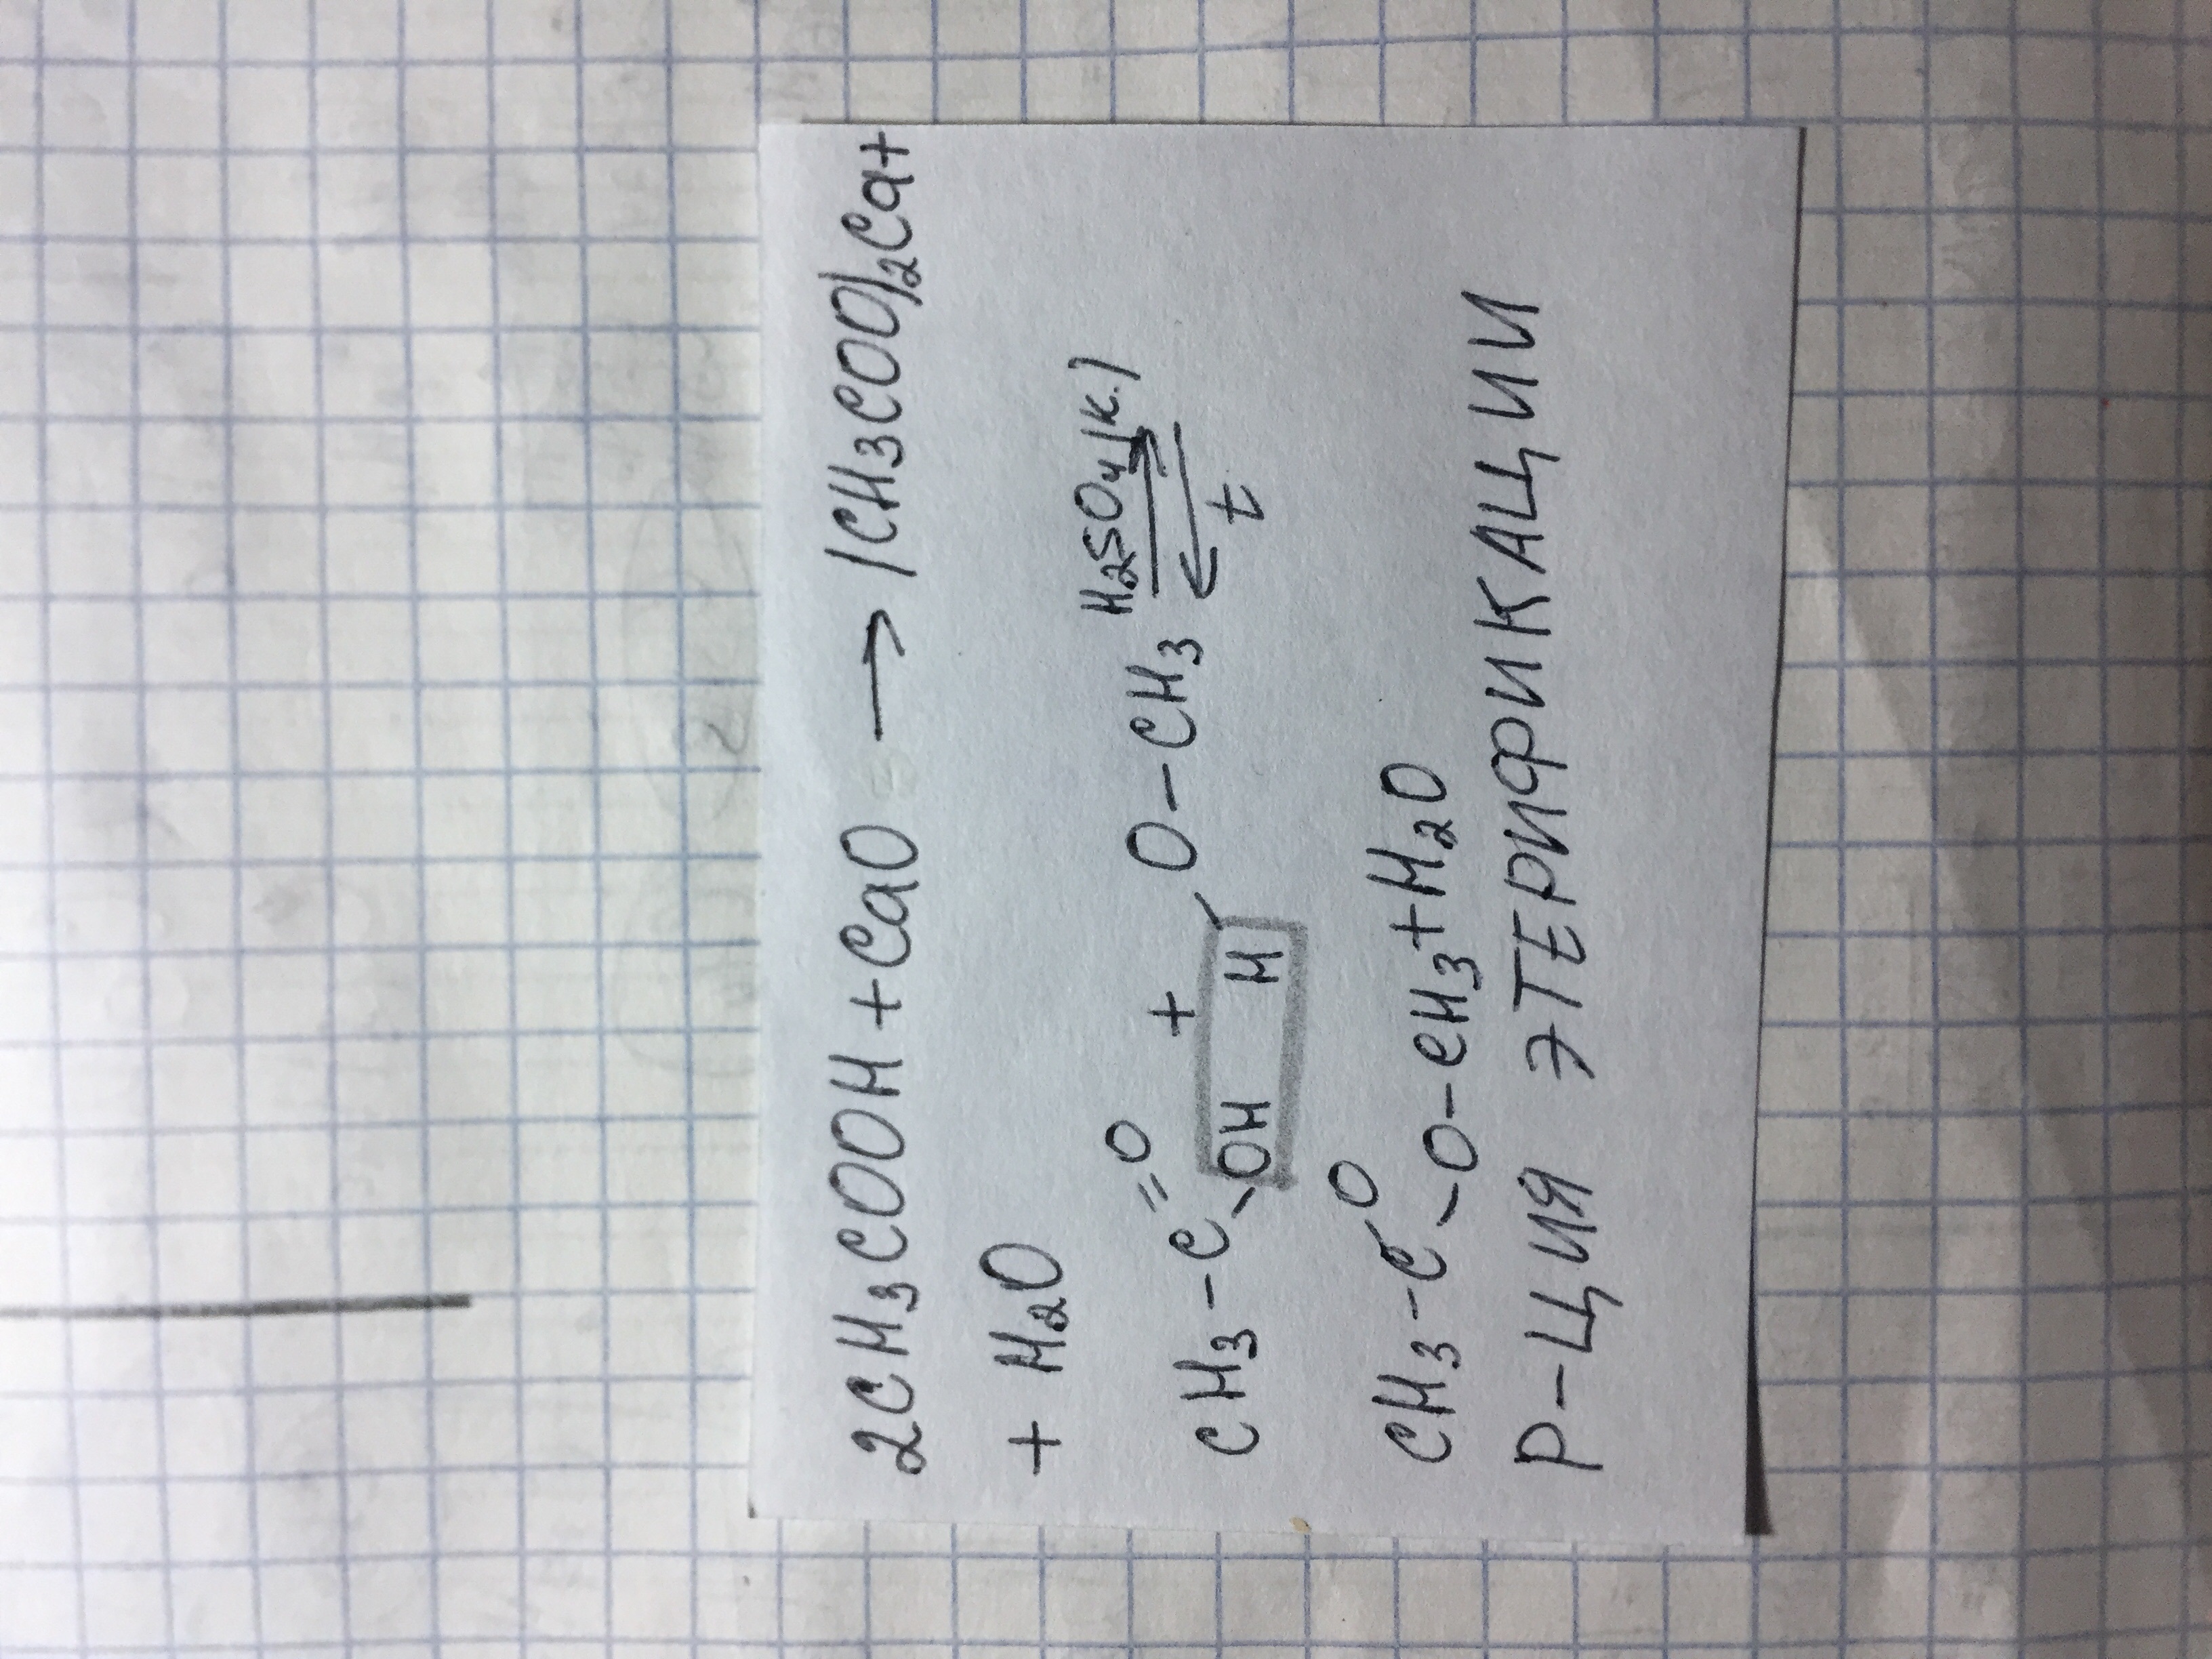 2CH₃COOH + CaO → (CH₃COO)₂Ca +
+ H₂O
H₂SO₄(к.)
CH₃ - C =O - OH + H - O - CH₃ ⇄
t
CH₃ - C - O - O - CH₃ + H₂O
Р-ЦИЯ ЭТЕРИФИКАЦИИ